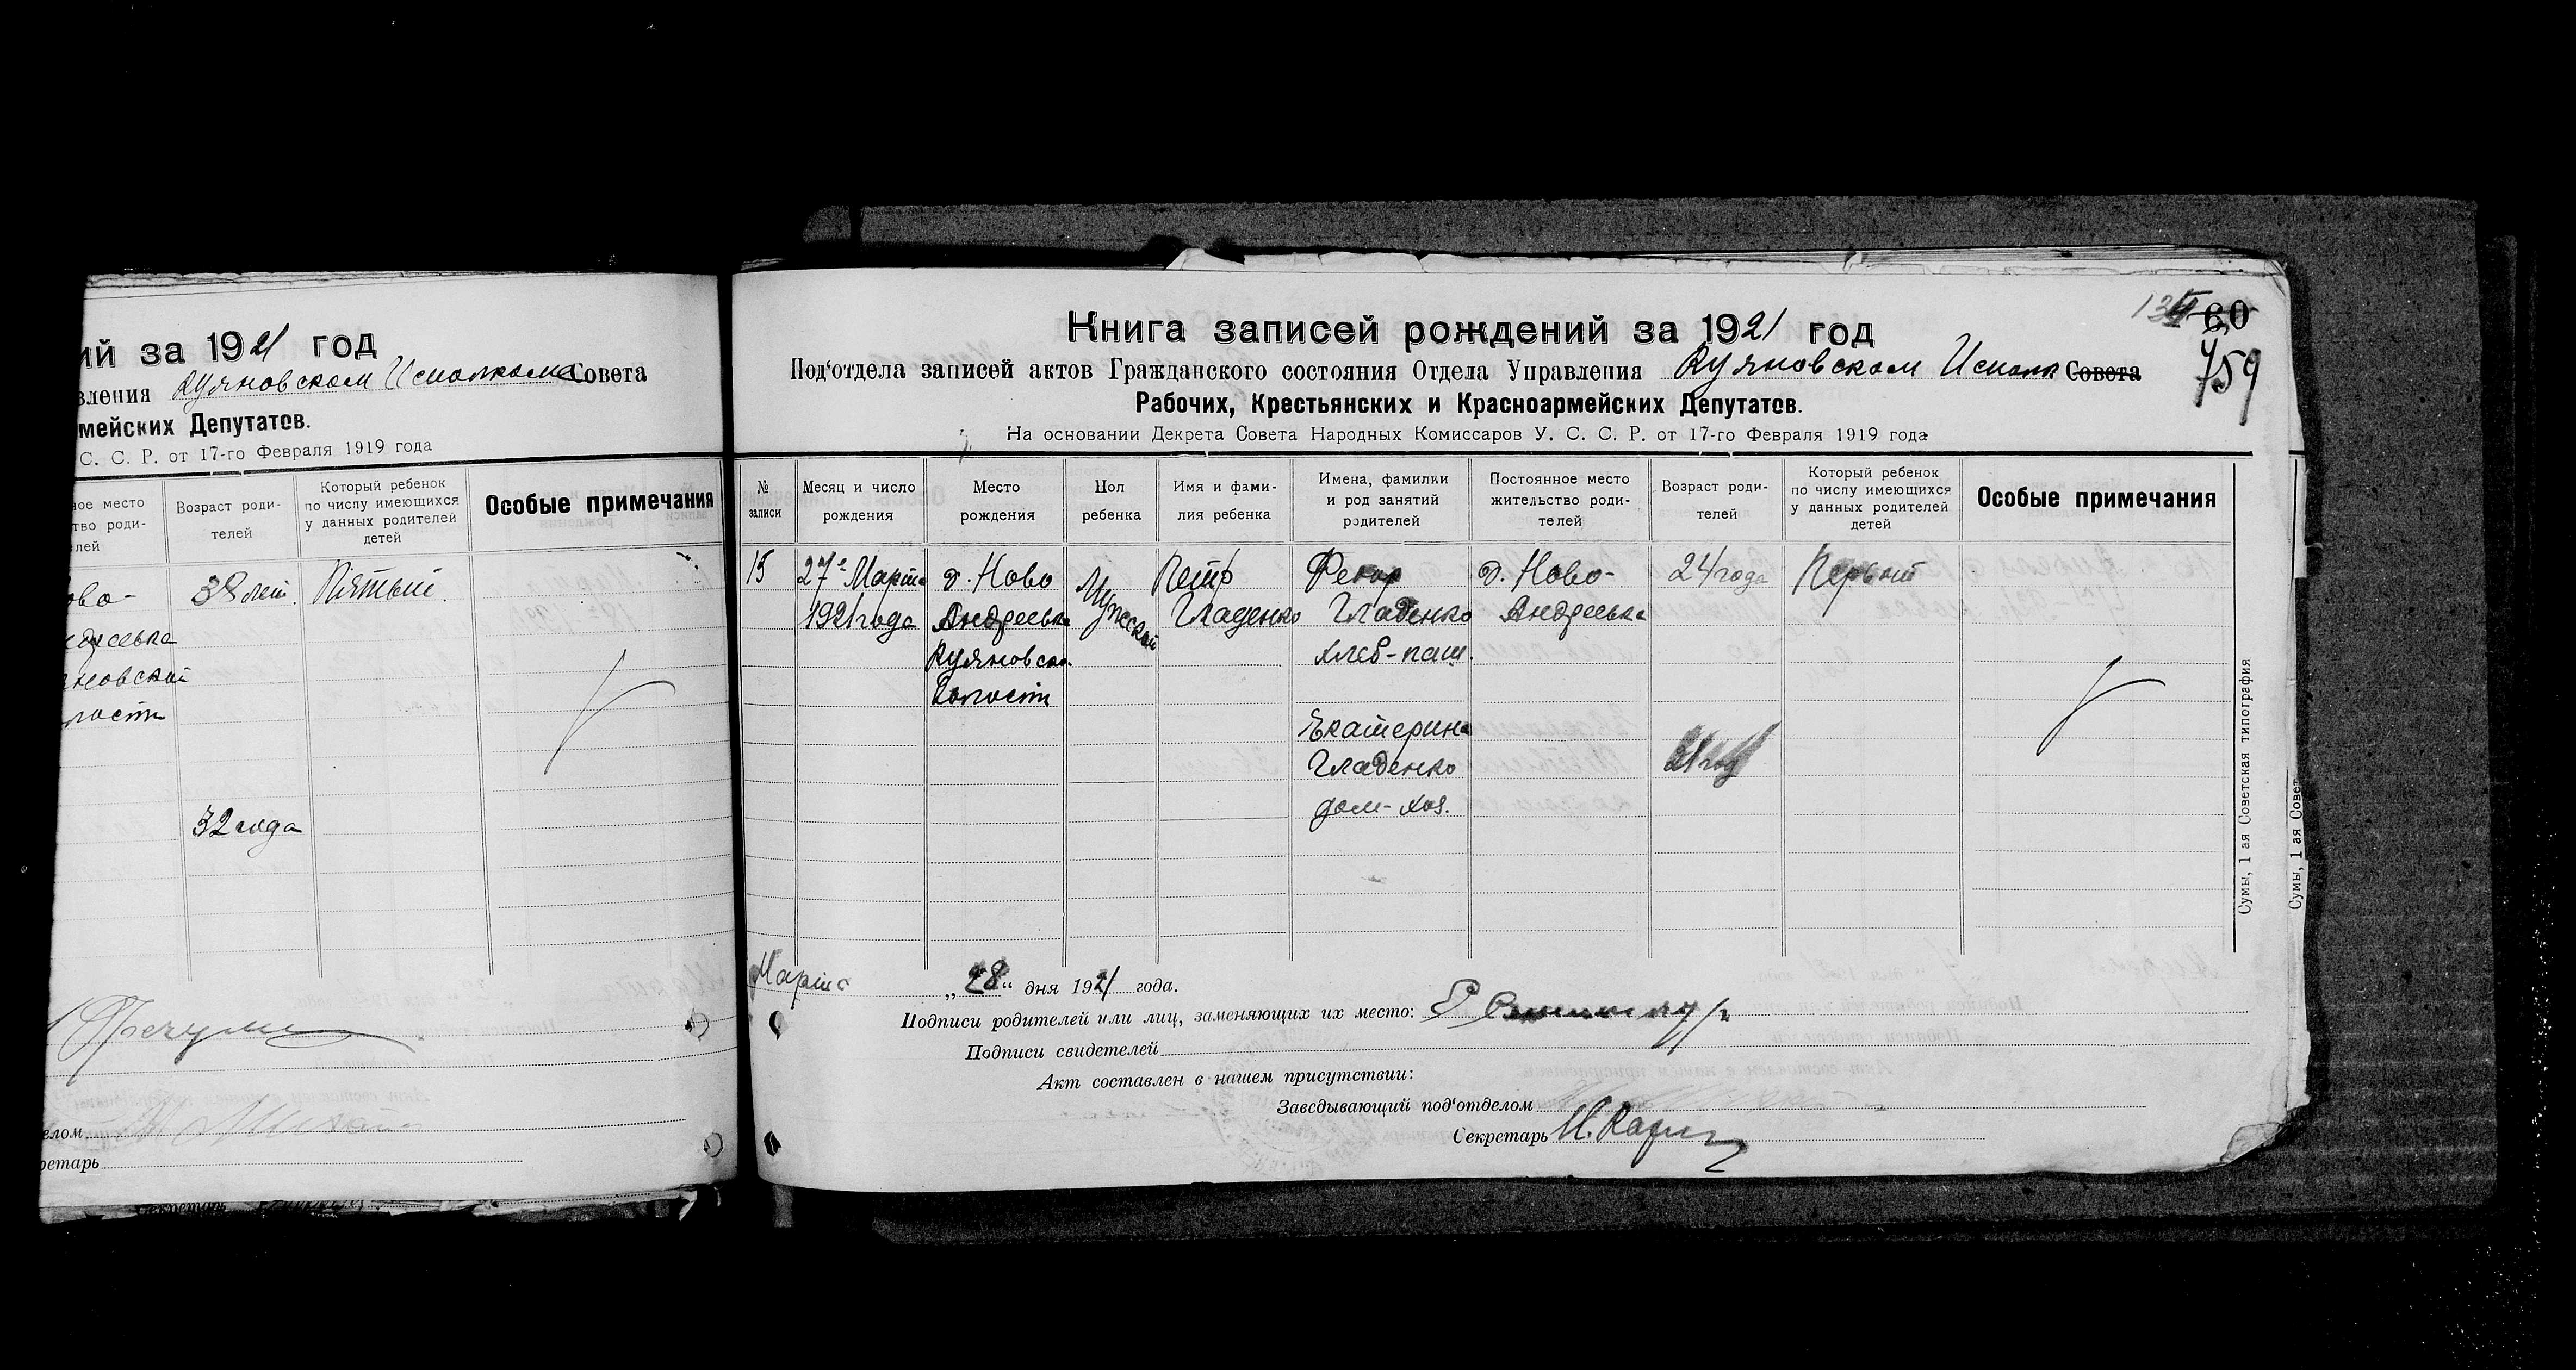 ий за 1921 год
вления Куяновском Исполкома Совета
мейских Депутатов.
С. С. Р. от 17-го Февраля 1919 года
ное место
тво роди-
лей
Возраст роди-
телей
Который ребенок
по числу имеющихся
у данных родителей
детей
Особые примечания
ово-
38 лет.
Пятый.
новской
лости
32 года
елом
ретарь
Секретарь
134 60
759
Книга записей рождений за 1921 год
Под'отдела записей актов Гражданского состояния Отдела Управления Куяновском Исполк Совета
Рабочих, Крестьянских и Красноармейских Депутатов.
На основании Декрета Совета Народных Комиссаров У. С. С. Р. от 17-го Февраля 1919 года
№
записи
Месяц и число
рождения
Место
рождения
Пол
ребенка
Имя и фами-
лия ребенка
Имена, фамилии
и род занятий
родителей
Постоянное место
жительство роди-
телей
Возраст роди-
телей
Который ребенок
по числу имеющихся
у данных родителей
детей
Особые примечания
15
27го Марта
1921 года
д. Ново
Андреевка
Куяновско.
Волости
Мужской
Петр
Гладенко
Гладенко
хлеб-паш.
Екатерина
Гладенко
дом-хоз.
д. Ново-
Андреевка
24 года
21 год
Первый
Марта „28“ дня 1921 года.
Подписи родителей или лиц, заменяющих их место:
Подписи свидетелей
Акт составлен в нашем присутствии:
Заведывающий под'отделом
Секретарь
Сумы, 1 ая Советская типография
Сумы, 1 ая Совет